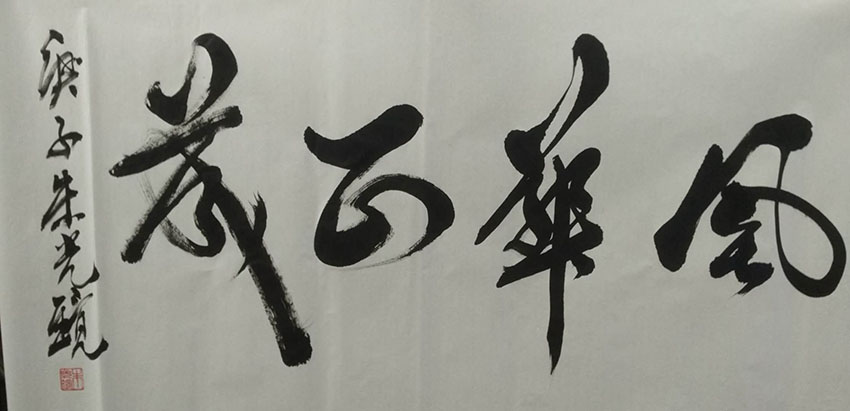 風華正茂
庚子朱光鏡